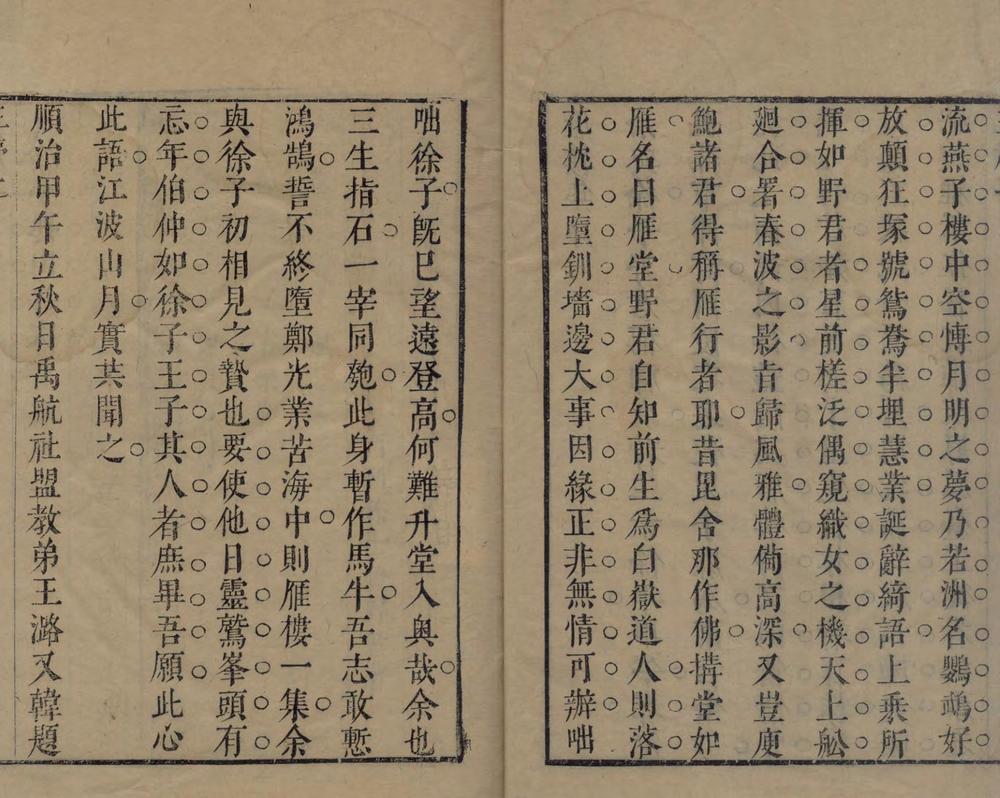 流燕子樓中空慱月明之夢乃若洲名鸚鵡好
放顛狂塚號鴛鴦半埋慧業誕辭綺語上乘所
揮如野君者星前槎泛偶窺織女之機天上舩
廻合署春波之影旨歸風雅體倘高深又豈庾
鮑諸君得稱雁行者耶昔昆舍那作佛搆堂如
雁名曰雁堂野君自知前生爲白嶽道人則落
花枕上墮釧墻邊大事因緣正非無情可辦咄
咄徐子旣已望遠登高何難升堂入奥哉余也
三生指石一宰同匏此身暫作馬牛吾志敢慙
鴻鵠誓不終墮鄭光業苦海中則雁樓一集余
與徐子初相見之贄也要使他日靈鷲峯頭有
忘年伯仲如徐子王子其人者庶畢吾願此心
此語江波山月實共聞之
順治甲午立秋日禹航社盟教弟王潞又韓題